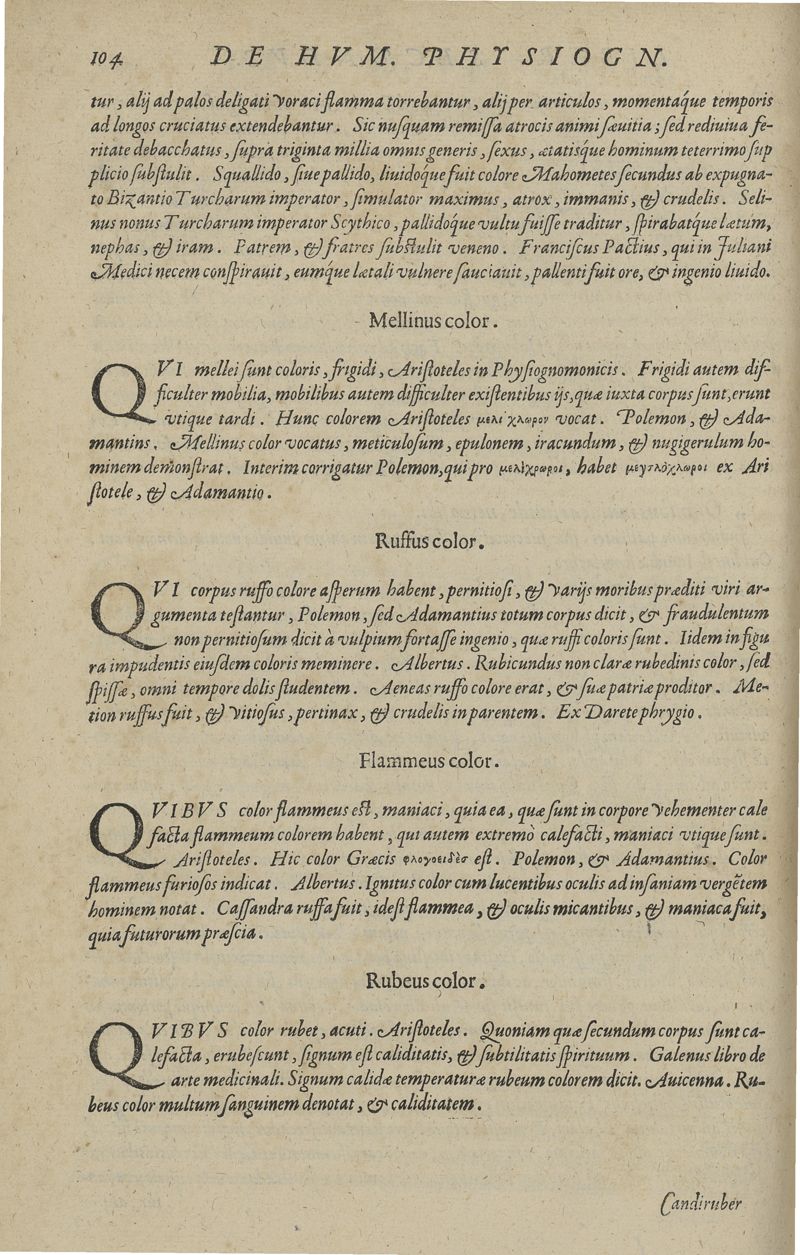 104 DE HVM. PHYSIOGN.
tur, alij ad palos deligati voraci flamma torrebantur, alij per articulos, momentaq́ue temporis
ad longos cruciatus extendebantur. Sic nusquam remissa atrocis animi sæuitia; sed rediuiua fe-
ritate debacchatus, supra triginta millia omnis generis, sexus, ætatisque hominum teterrimo sup
plicio substulit. Squallido, siue pallido, liuidoque fuit colore Mahometes secundus ab expugna-
to Bizantio Turcharum imperator, simulator maximus, atrox, immanis, & crudelis. Seli-
nus nonus Turcharum imperator Scythico, pallidoq́ue vultu fuisse traditur, spirabatq́ue lætum,
nephas, & iram. Patrem, & fratres substulit veneno. Franciscus Pactius, qui in Juliani
Medici necem conspirauit, eumq́ue lætali vulnere sauciauit, pallenti fuit ore, & ingenio liuido.
Mellinus color.
QVI mellei sunt coloris, frigidi, Aristoteles in Physiognomonicis. Frigidi autem dif-
ficulter mobilia, mobilibus autem difficulter existentibus ijs, quæ iuxta corpus sunt, erunt
vtique tardi. Hunc colorem Aristoteles μελι χλωρον vocat. Polemon, & Ada-
mantins. Mellinus color vocatus, meticulosum, epulonem, iracundum, & nugigerulum ho-
minem demonstrat. Interim corrigatur Polemon, qui pro μελίχρωροι, habet μεγαλόχλωροι ex Ari
stotele, & Adamantio.
Ruffus color.
QVI corpus ruffo colore asperum habent, pernitiosi, & varijs moribus præditi viri ar-
gumenta testantur, Polemon, sed Adamantius totum corpus dicit, & fraudulentum
non pernitiosum dicit à vulpium fortasse ingenio, quæ ruffi coloris sunt. Iidem in figu
ra impudentis eiusdem coloris meminere. Albertus. Rubicundus non claræ rubedinis color, sed
spissæ, omni tempore dolis studentem. Aeneas ruffo colore erat, & suæ patriæ proditor. Me-
tion ruffus fuit, & vitiosus, pertinax, & crudelis in parentem. Ex Darete phrygio.
Flammeus color.
QVIBVS color flammeus est, maniaci, quia ea, quæ sunt in corpore vehementer cale
facta flammeum colorem habent, qui autem extremò calefacti, maniaci vtique sunt.
Aristoteles. Hic color Græcis φλογοειδὲσ est. Polemon, & Adamantius. Color
flammeus furiosos indicat. Albertus. Ignitus color cum lucentibus oculis ad insaniam vergẽtem
hominem notat. Cassandra ruffa fuit, idest flammea, & oculis micantibus, & maniaca fuit,
quia futurorum præscia.
Rubeus color.
QVIBVS color rubet, acuti. Aristoteles. Quoniam quæ secundum corpus sunt ca-
lefacta, erubescunt, signum est caliditatis, & subtilitatis spirituum. Galenus libro de
arte medicinali. Signum calidæ temperaturæ rubeum colorem dicit. Auicenna. Ru-
beus color multum sanguinem denotat, & caliditatem.
Candiruber